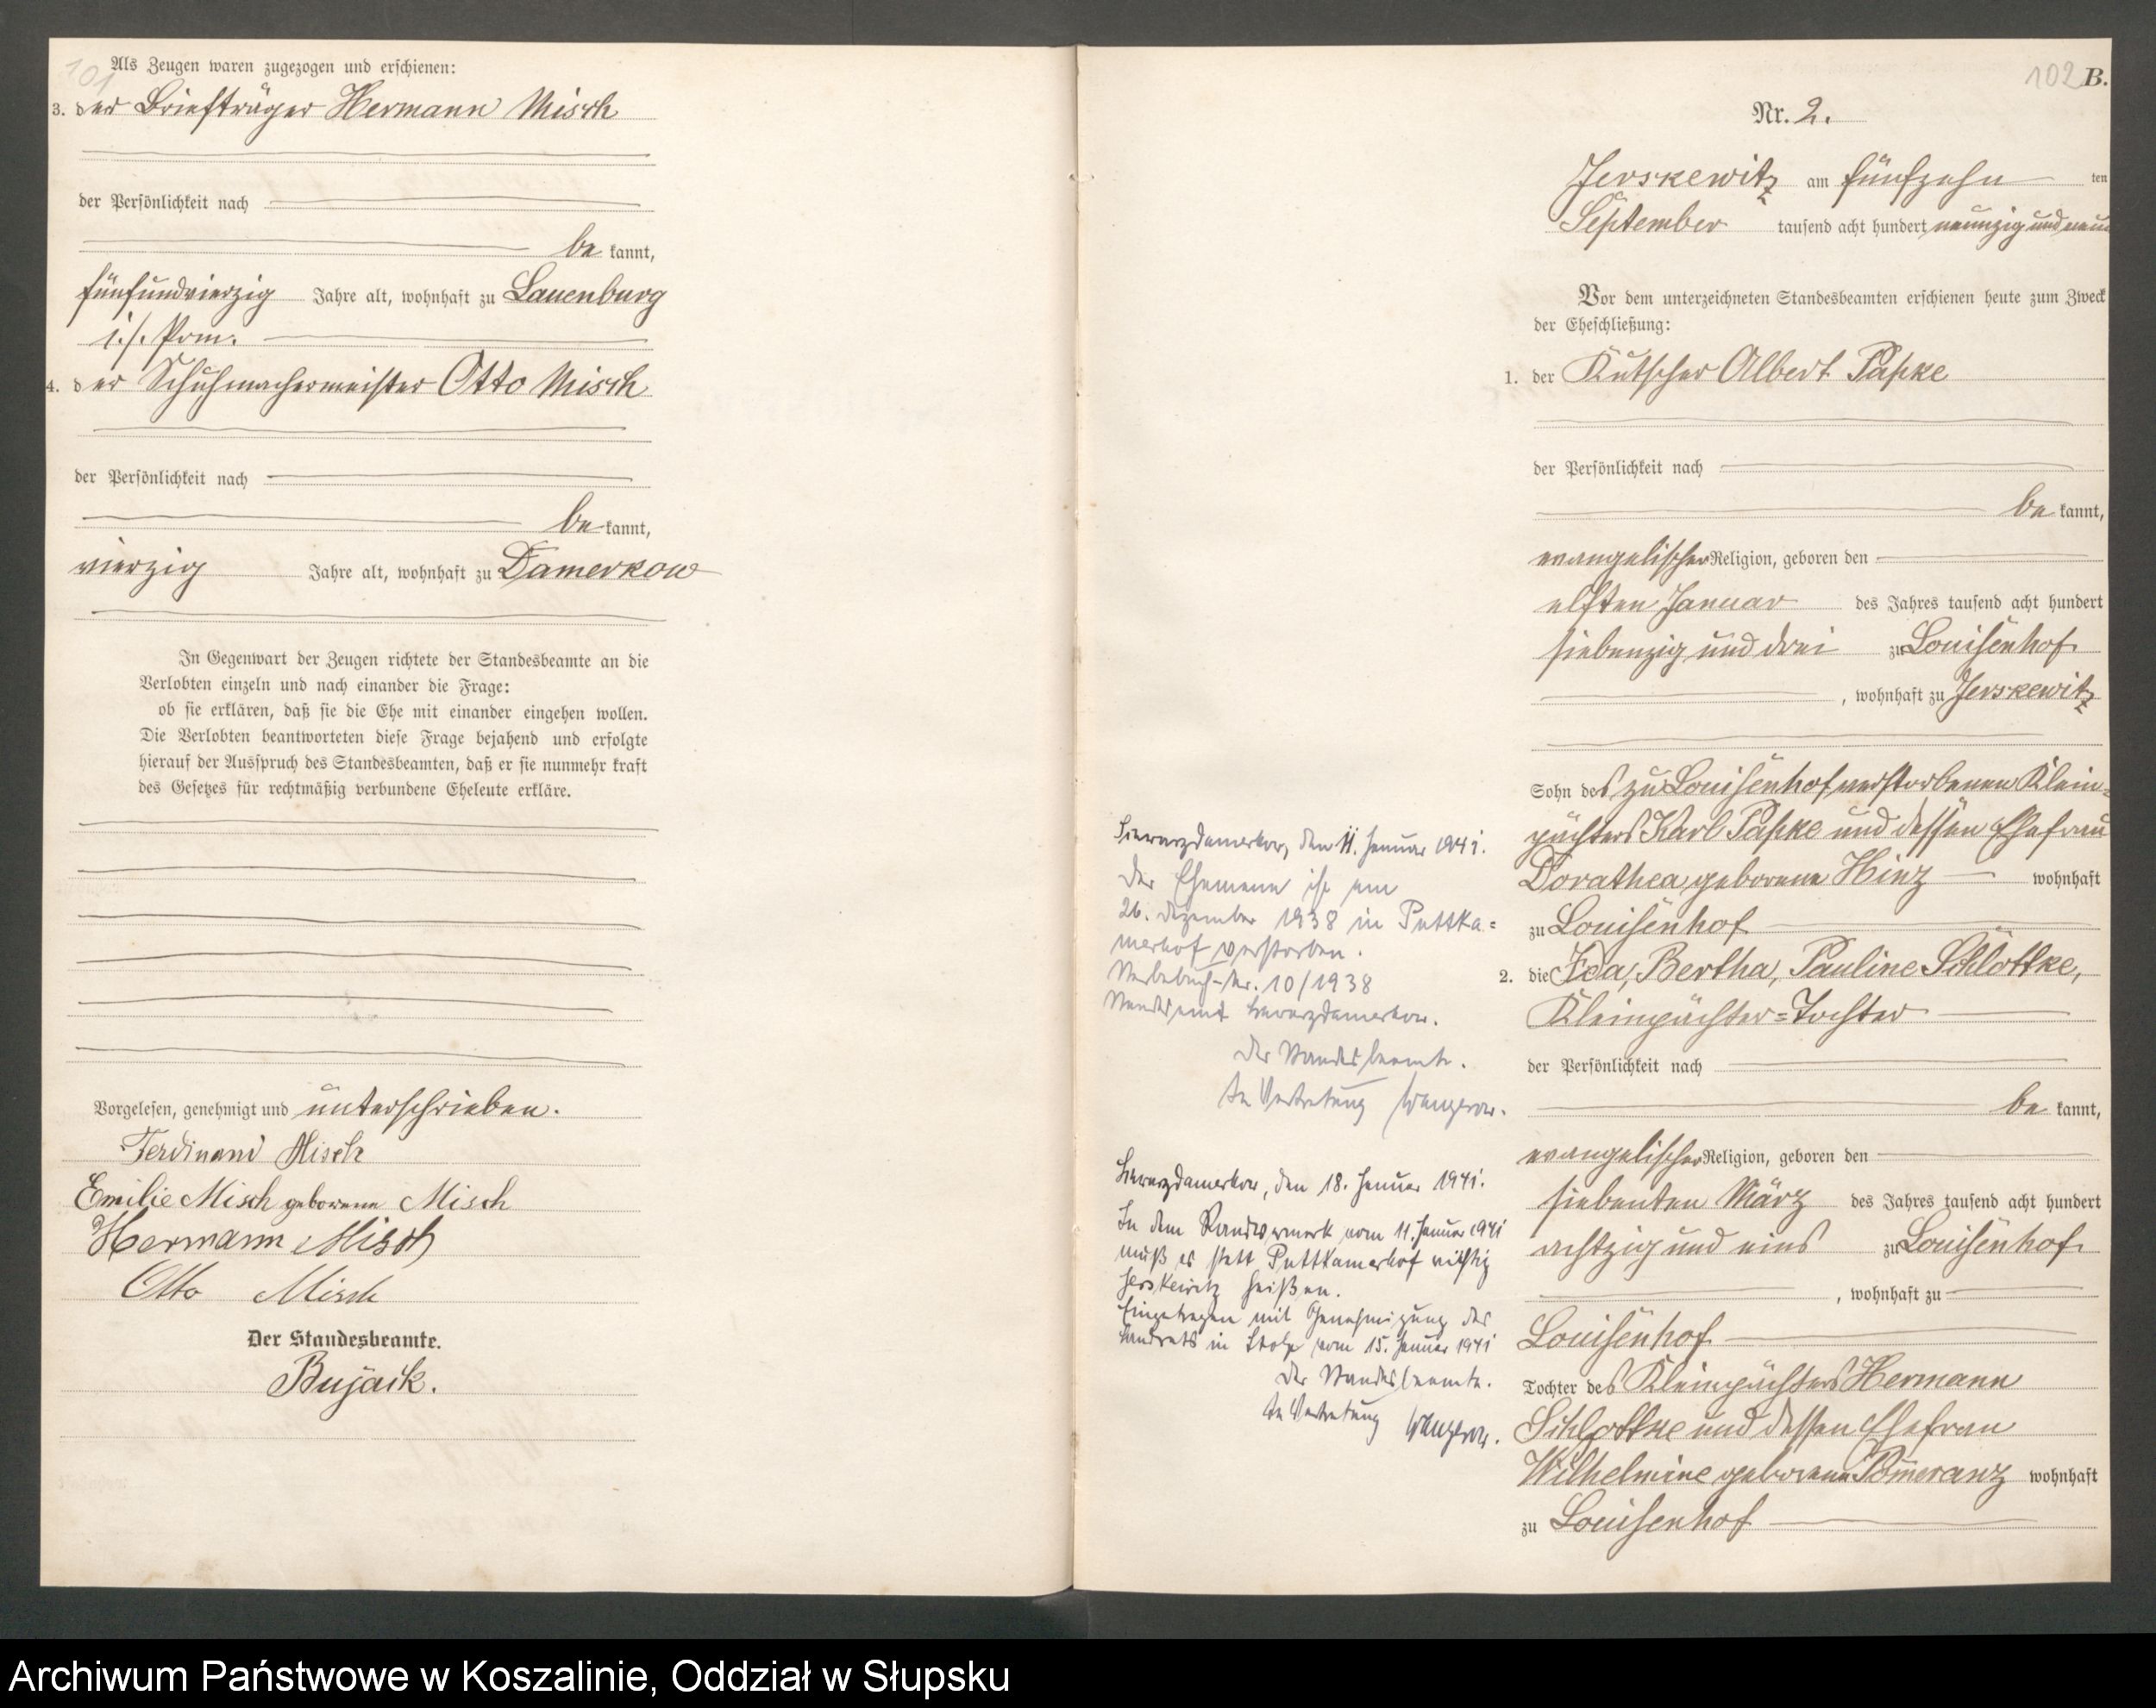 101
Als Zeugen waren zugezogen und erschienen:
3. der Briefträger Hermann Misch
der Persönlichkeit nach
be kannt,
fünfundvierzig Jahre alt, wohnhaft zu Lauenburg
i./. Pom.
4. der Schuhmachermeister Otto Misch
der Persönlichkeit nach
be kannt,
vierzig Jahre alt, wohnhaft zu Damerkow
In Gegenwart der Zeugen richtete der Standesbeamte an die
Verlobten einzeln und nach einander die Frage:
ob sie erklären, daß sie die Ehe mit einander eingehen wollen.
Die Verlobten beantworteten diese Frage bejahend und erfolgte
hierauf der Ausspruch des Standesbeamten, daß er sie nunmehr kraft
des Gesetzes für rechtmäßig verbundene Eheleute erkläre.
Vorgelesen, genehmigt und unterschrieben.
Ferdinand Misch
Emilie Misch geborene Misch
Hermann Misch
Otto Misch
Der Standesbeamte.
Bujack.
102 B.
Nr. 2.
Jerskewitz am fünfzehn ten
September tausend acht hundert neunzig und neun
Vor dem unterzeichneten Standesbeamten erschienen heute zum Zweck
der Eheschließung:
1. der Kutscher Albert Papke
der Persönlichkeit nach
be kannt,
evangelischer Religion, geboren den
elften Januar des Jahres tausend acht hundert
siebenzig und drei zu Louisenhof
, wohnhaft zu Jerskewitz
Sohn des zu Louisenhof verstorbenen Klein-
pächters Karl Papke und dessen Ehefrau
Dorathea geborene Hinz wohnhaft
zu Louisenhof
2. die Ida, Bertha, Pauline Schlottke,
Kleinpächter=Tochter
der Persönlichkeit nach
be kannt,
evangelischer Religion, geboren den
siebenten März des Jahres tausend acht hundert
achtzig und eins zu Louisenhof
, wohnhaft zu
Louisenhof
Tochter des Kleinpächters Hermann
Schlottke und dessen Ehefrau
Wilhelmine geborene Pommeranz wohnhaft
zu Louisenhof
Schwarzdamerkow, den 11. Januar 1941.
Der Ehemann ist am
26. Dezember 1938 in Puttka=
merhof verstorben.
Sterbebuch-Nr. 10/1938
Standesamt Schwarzdamerkow.
Der Standesbeamte.
In Vertretung Wangerow.
Schwarzdamerkow, den 18. Januar 1941.
In dem Randvermerk vom 11. Januar 1941
muß es statt Puttkamerhof richtig
Jerskewitz heißen.
Eingetragen mit Genehmigung des
Landrats in Stolp vom 15. Januar 1941
Der Standesbeamte.
In Vertretung Wangerow.
Archiwum Państwowe w Koszalinie, Oddział w Słupsku